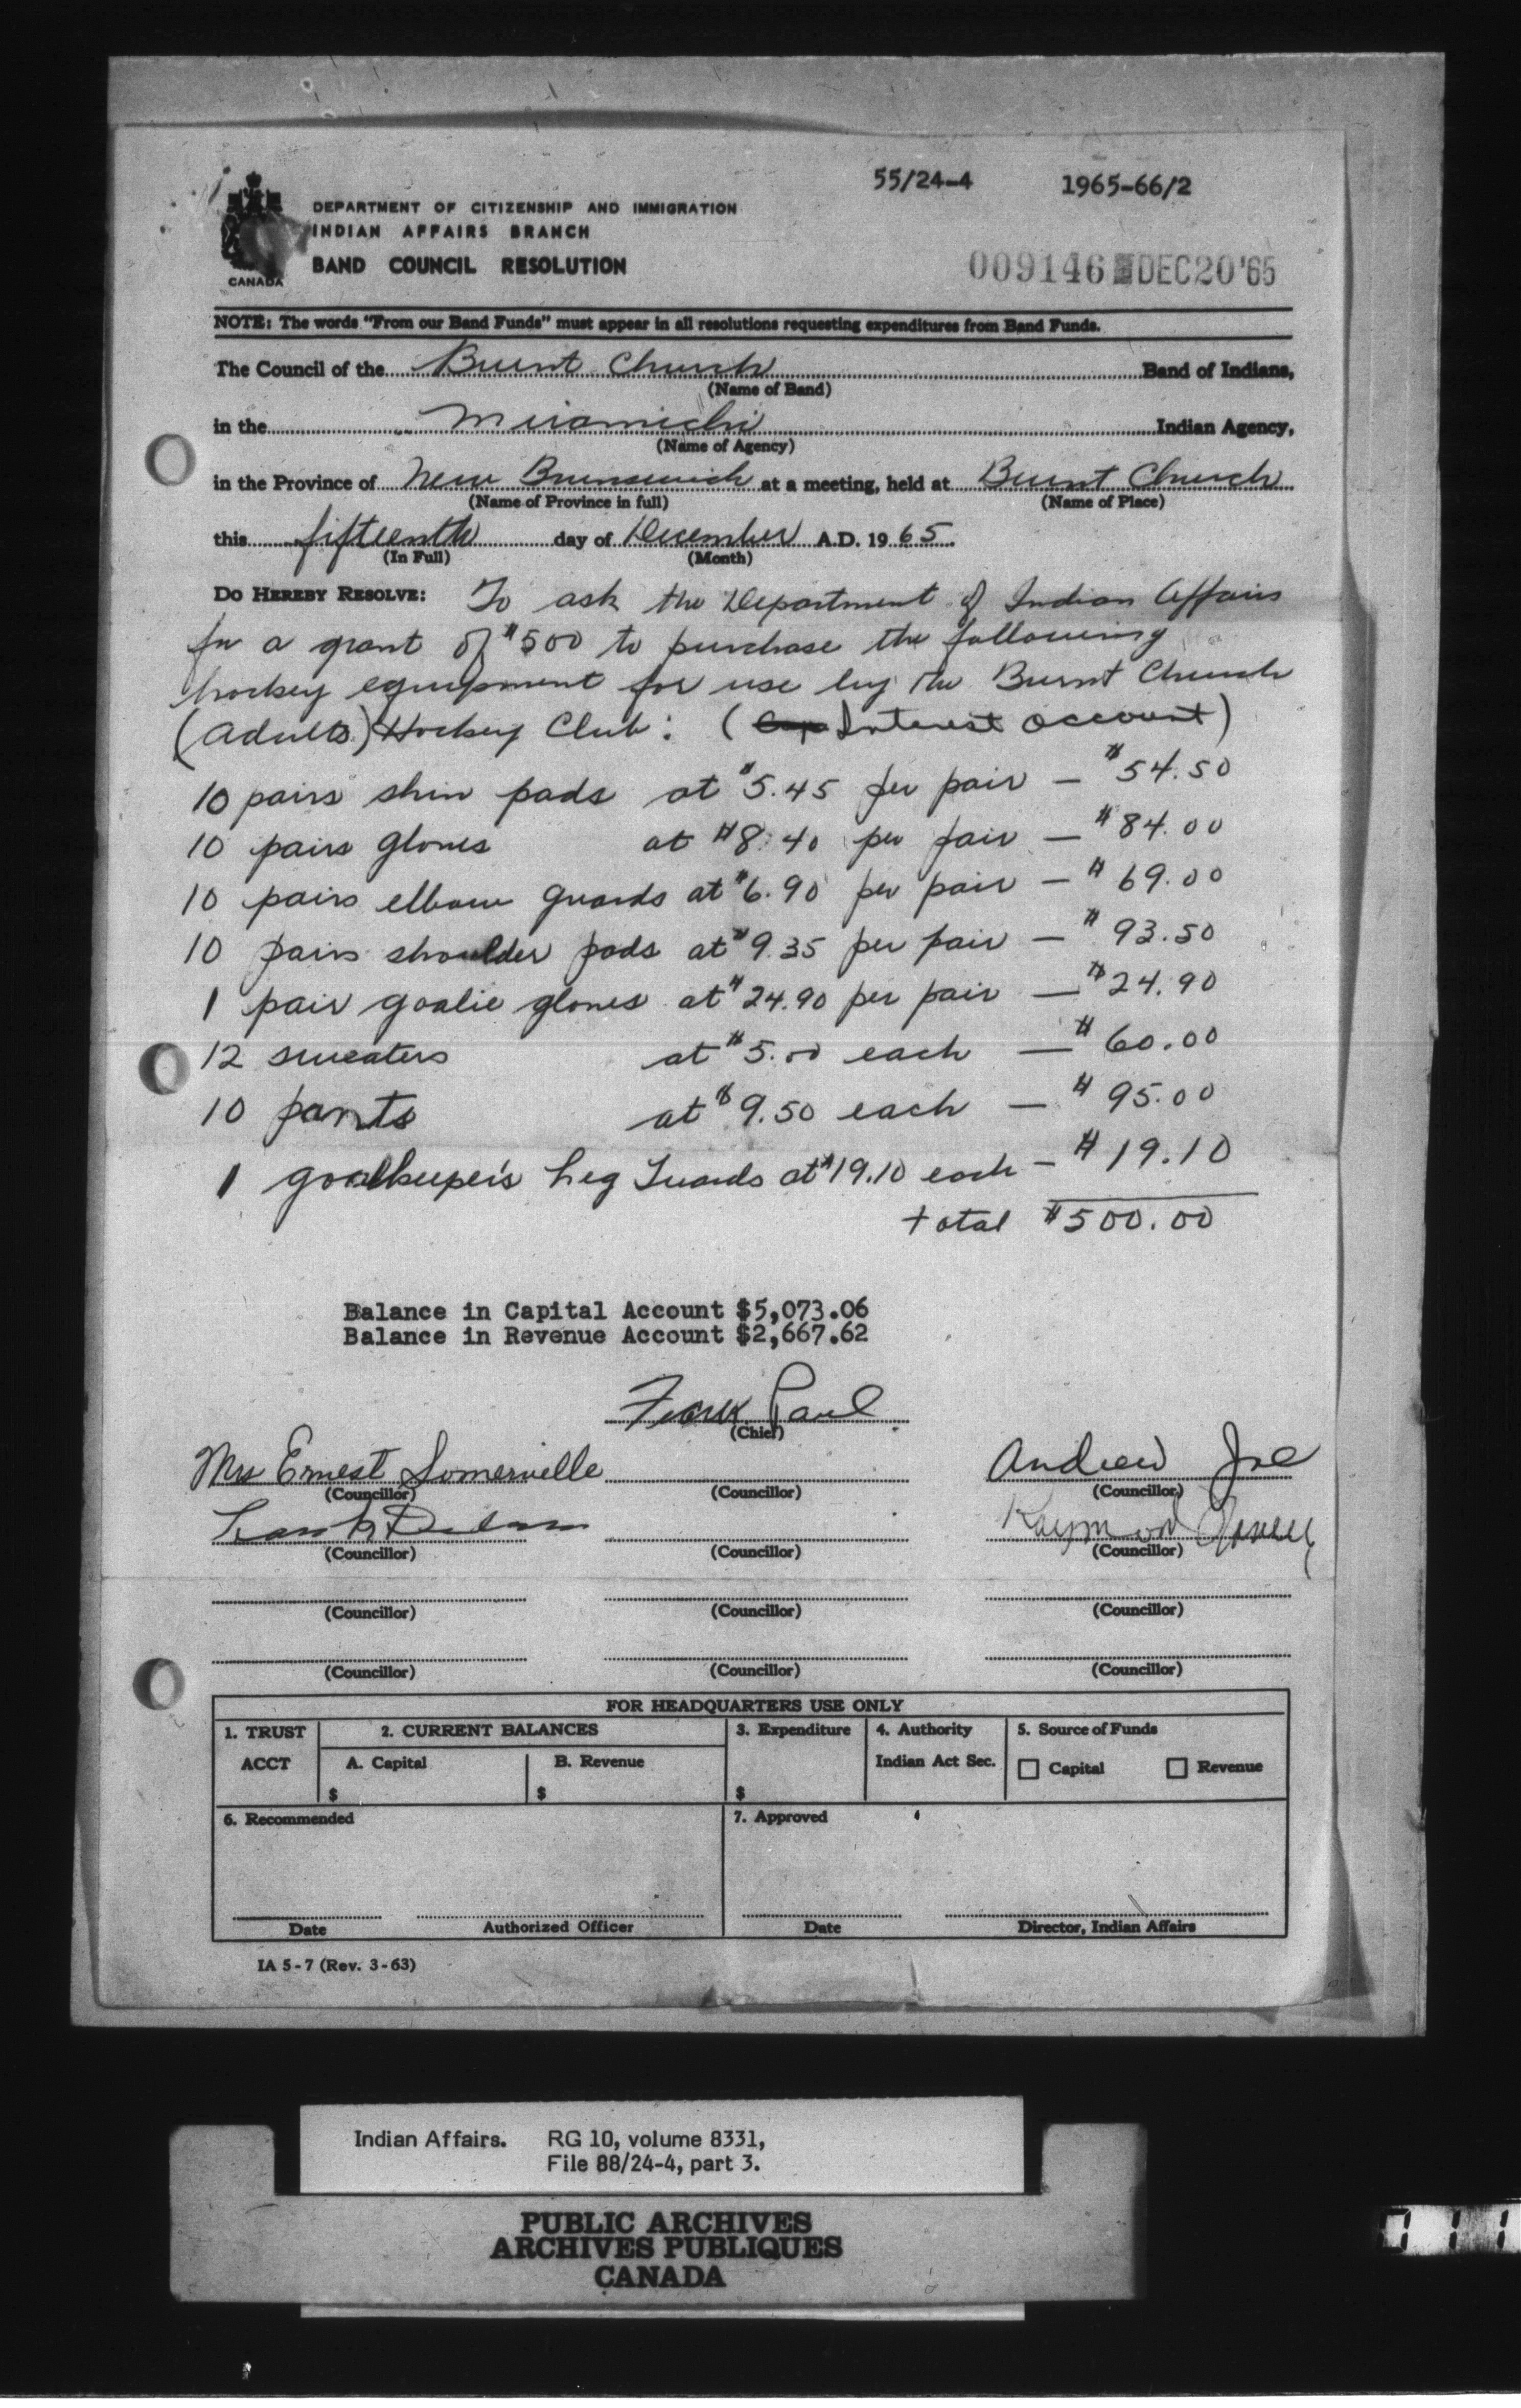 55/24-4 1965-66/2
DEPARTMENT OF CITIZENSHIP AND IMMIGRATION
INDIAN AFFAIRS BRANCH
BAND COUNCIL RESOLUTION
CANADA
009146 DEC20'65
NOTE: The words "From our Band Funds" must appear in all resolutions requesting expenditures from Band Funds.
The Council of the Burnt Church Band of Indians,
(Name of Band)
in the Miramichi Indian Agency,
(Name of Agency)
in the Province of New Brunswick at a meeting, held at Burnt Church
(Name of Province in full) (Name of Place)
this fifteenth day of December A.D. 19 65.
(In Full) (Month)
DO HEREBY RESOLVE: To ask the Department of Indian Affairs
for a grant of $500 to purchase the following
hockey equipment for use by the Burnt Church
(Adults) Hockey Club: (Cap Interest account)
10 pairs shin pads at $5.45 per pair — $54.50
10 pairs gloves at $8.40 per pair — $84.00
10 pairs elbow guards at $6.90 per pair — $69.00
10 pairs shoulder pads at $9.35 per pair — $93.50
1 pair goalie gloves at $24.90 per pair — $24.90
12 sweaters at $5.00 each — $60.00
10 pants at $9.50 each — $95.00
1 goalkeeper's Leg Guards at $19.10 each — $19.10
total $500.00
Balance in Capital Account $5,073.06
Balance in Revenue Account $2,667.62
Frank Paul
(Chief)
Mrs Ernest Somerville Andrew Joe
(Councillor) (Councillor) (Councillor)
Raymond
(Councillor) (Councillor) (Councillor)
(Councillor) (Councillor) (Councillor)
(Councillor) (Councillor) (Councillor)
FOR HEADQUARTERS USE ONLY
1. TRUST ACCT 2. CURRENT BALANCES 3. Expenditure 4. Authority 5. Source of Funds
A. Capital B. Revenue Indian Act Sec. Capital Revenue
$ $ $
6. Recommended 7. Approved
Date Authorized Officer Date Director, Indian Affairs
IA 5-7 (Rev. 3-63)
Indian Affairs. RG 10, volume 8331,
File 88/24-4, part 3.
PUBLIC ARCHIVES
ARCHIVES PUBLIQUES
CANADA